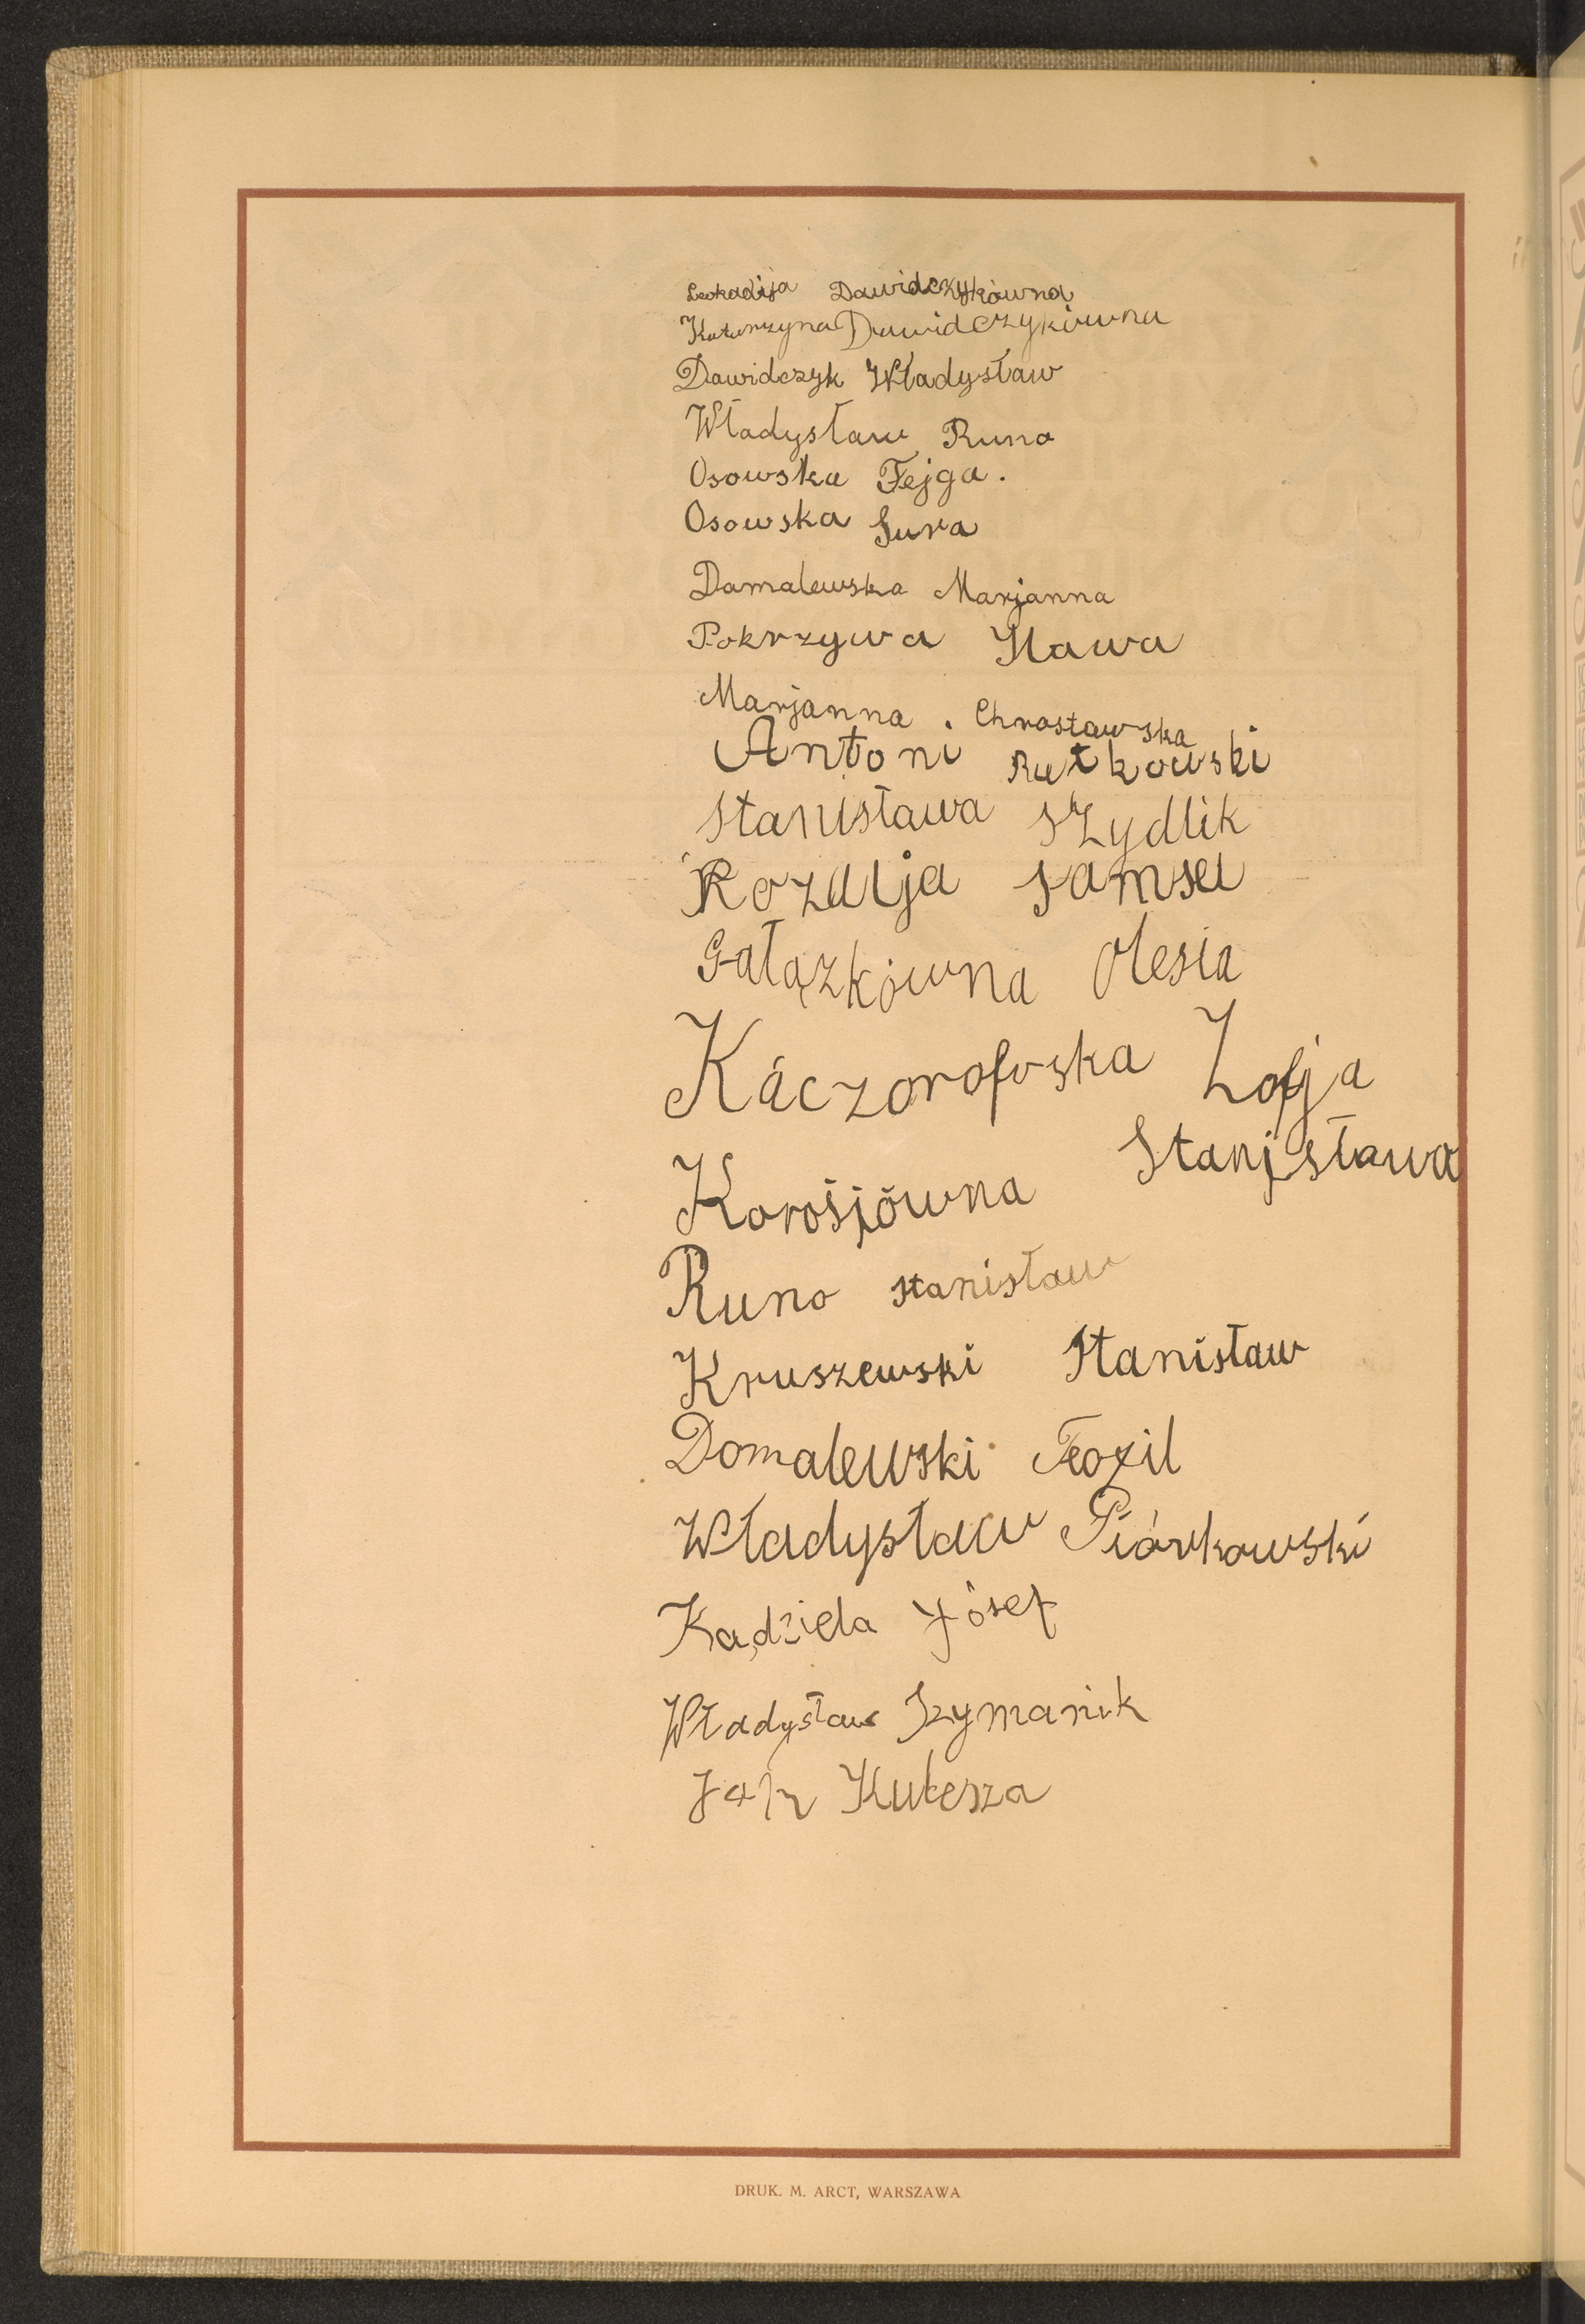 Leokadija Dawidczykówna
Katarzyna Dawidczykówna
Dawidczyk Władysław
Władysław Runo
Osowska Fejga.
Osowska Sura
Damalewska Marjanna
Pokrzywa Hawa
Marjanna. Chrostawska
Antoni Rutkowski
Stanisława Szydlik
Rozalja Samsel
Gałązkówna Olesia
Kaczorofwska Zofja
Korośjówna Stanjsława
Runo Stanisław
Kruszewski Stanisław
Domalewski Teofil
Władysław Piórkowski
Kądziela Jósef
Władysław Szymanik
Kulesza
DRUK. M. ARCT, WARSZAWA